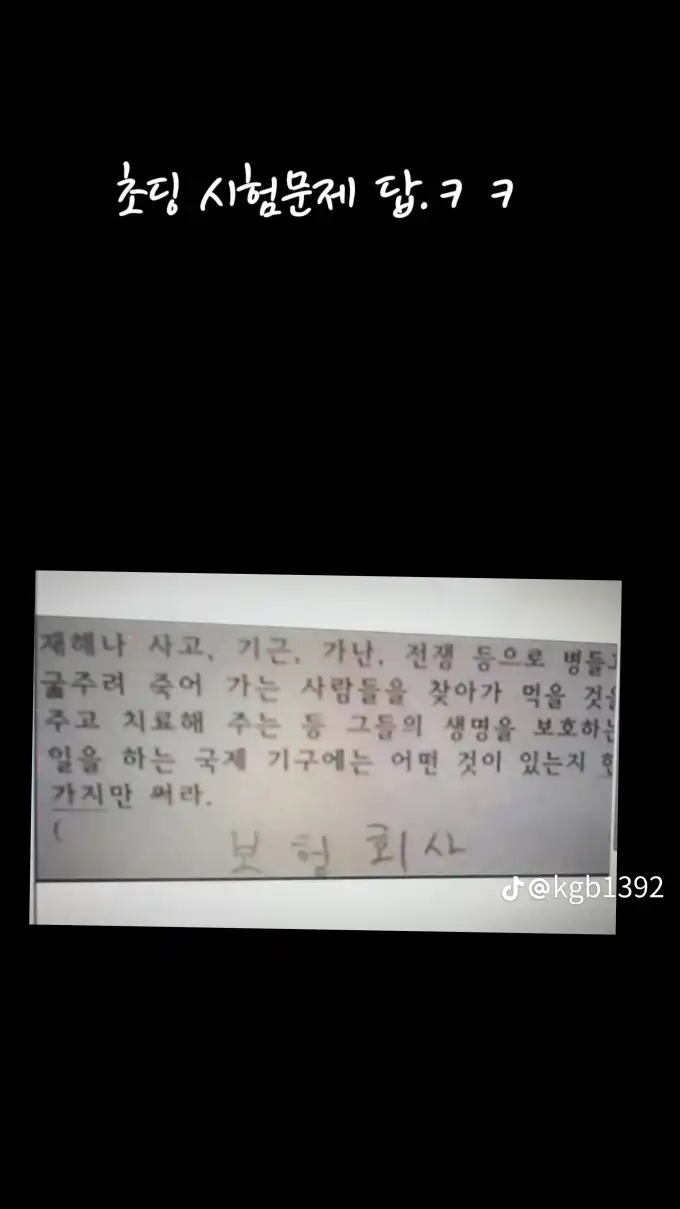 초딩 시험문제 답.ㅋ ㅋ
재해나 사고, 기근, 가난, 전쟁 등으로
굶주려 죽어 가는 사람들을 찾아가 먹을
주고 치료해 주는 등 그들의 생명을
일을 하는 국제 기구에는 어떤 것이 있는지
가지만 써라.
(
보험회사
@kgb1392